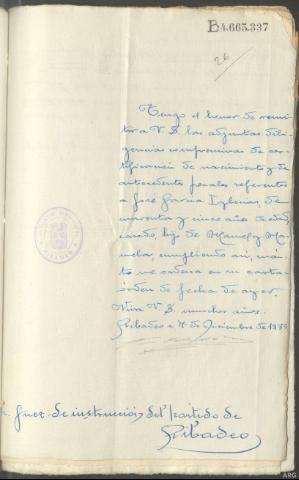 B4.665.337
26
Tengo el honor de remi
tir a V. S. las adjuntas dili-
gencias comprensivas de cer-
tificación de nacimiento y de
antecedentes penales referentes
a José García Iglesias, de
cuarenta y cinco años de edad,
casado, hijo de Manuel y Ma-
nuela, cumpliendo así, cuán-
to me ordena en su carta
órden de fecha de ayer.
Viva V. S. muchos años.
Ribadeo a 7 de Diciembre de
Juez de instrucción del partido de
Ribadeo
ARG